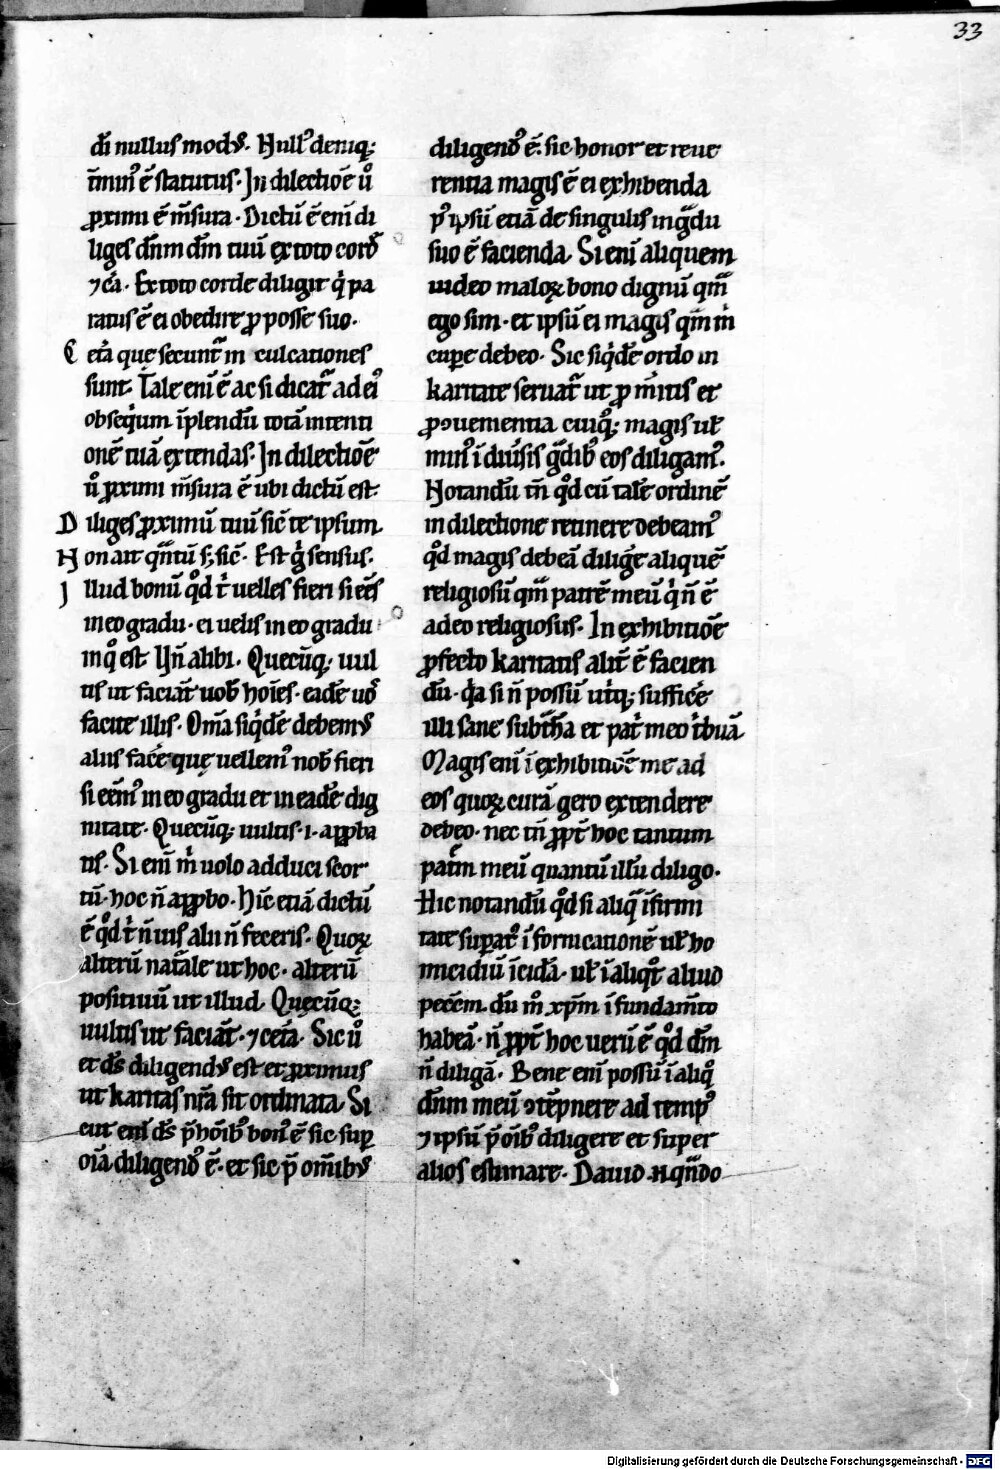 33
dī nullus modꝰ. Nullꝰ deniq;
t̄minꝰ ē statutus. In dilectiōe ů
ꝓximi ē m̄sura. Dictū ē enī di
liges dn̄m dm̄ tuū ex toto cord̄
⁊ cͣ. Ex toto corde diligit qͥ pa
ratus ē ei obedire ꝓ posse suo.
Cetͣ que secunt̄ in culcationes
sunt. Tale enī ē ac si dicat̄ ad eiꝰ
obseqͥum īplendū totā intenti
onē tuā extendas. In dilectiōe
ů ꝓximi m̄sura ē ubi dictū est.
Diliges ꝓximū tuū sic̄ te ipsum
Non ait qn̄tū sꝫ sic̄. Est gͦ sensus.
Illud bonū qͦd tͥ uelles fieri si eēs
in eo gradu. ei uelis in eo gradu
in qͦ est. Un̄ alibi. Quecūq; uul
tis ut faciāt uob̄ hoīes. eadē uoͥ
facite illis. Om̄a siqͥdē debemꝰ
aliis fac̄e que uellemꝰ nob̄ fieri
si eēmꝰ in eo gradu et in eadē dig
nitate. Quecūq; uultis .i. apꝓba
tis. Si enī m̄ uolo adduci scor
tū. hoc n̄ apꝓbo. Hīc etiā dictū
ē qͦd tͥ n̄ uis alii n̄ feceris. Quoꝝ
alterū natͣle ut hoc. alterū
positiuū ut illud. Quecūq;
uultis ut faciāt. ⁊ cetͣ. Sic ů
et dꝰ diligendꝰ est et ꝓximus
ut karitas nr̄a sit ordinata. Si
cut enī dꝰ p̄ hōibꝰ bonꝰ ē sic suꝑ
oīa diligendꝰ ē. et sic p̄ om̄ibꝰ
diligendꝰ ē. sic honor et reue
rentia magis ē ei exhibenda
p̄ ipsū etiā de singulis in gͣdu
suo ē facienda. Si enī aliquem
uideo maloꝝ bono dignū qm̄
ego sim. et ipsū ei magis qm̄ m̄
cuꝑe debeo. Sic siqͥdē ordo in
karitate seruat̄ ut ꝓ m̄itis et
ꝓ ꝯuenientia cuiꝰq; magis ul̄
minꝰ ī diu̾sis gͣdibꝰ eos diligamꝰ.
Notandū tn̄ qͦd cū talē ordinē
in dilectione retinere debeamꝰ
qͦd magis debeā dilig̾e aliquē
religiosū qm̄ patrē meū qͥ n̄ ē
adeo religiosus. In exhibitiōe
ꝓfecto karitatis alit̄ ē facien
dū. qͥa si n̄ possū utͥq; suffic̾e
illi sane subtͣhā et patͥ meo tͥbuā
Magis enī ī exhibitiōe me ad
eos quoꝝ curā gero extendere
debeo. nec tn̄ ꝓpt̄ hoc tantum
patͥm meū quantū illū diligo.
Hic notandū qͦd si aliqͣ īfirmi
tate suꝑatꝰ ī fornicationē ul̄ ho
micidiū īcidā. ul̄ ī aliqͦt aliud
pecc̄m. dū mͦ xp̄m ī fundam̄to
habeā. n̄ ꝓpt̄ hoc uerū ē qͦd dm̄
n̄ diligā. Bene enī possū ī aliqͦ
dn̄m meū ꝯtēpnere ad tempꝰ
⁊ ipsū p̄ oībꝰ diligere et super
alios estimare. Dauid .n. qn̄do
Digitalisierung gefördert durch die Deutsche Forschungsgemeinschaft - DFG